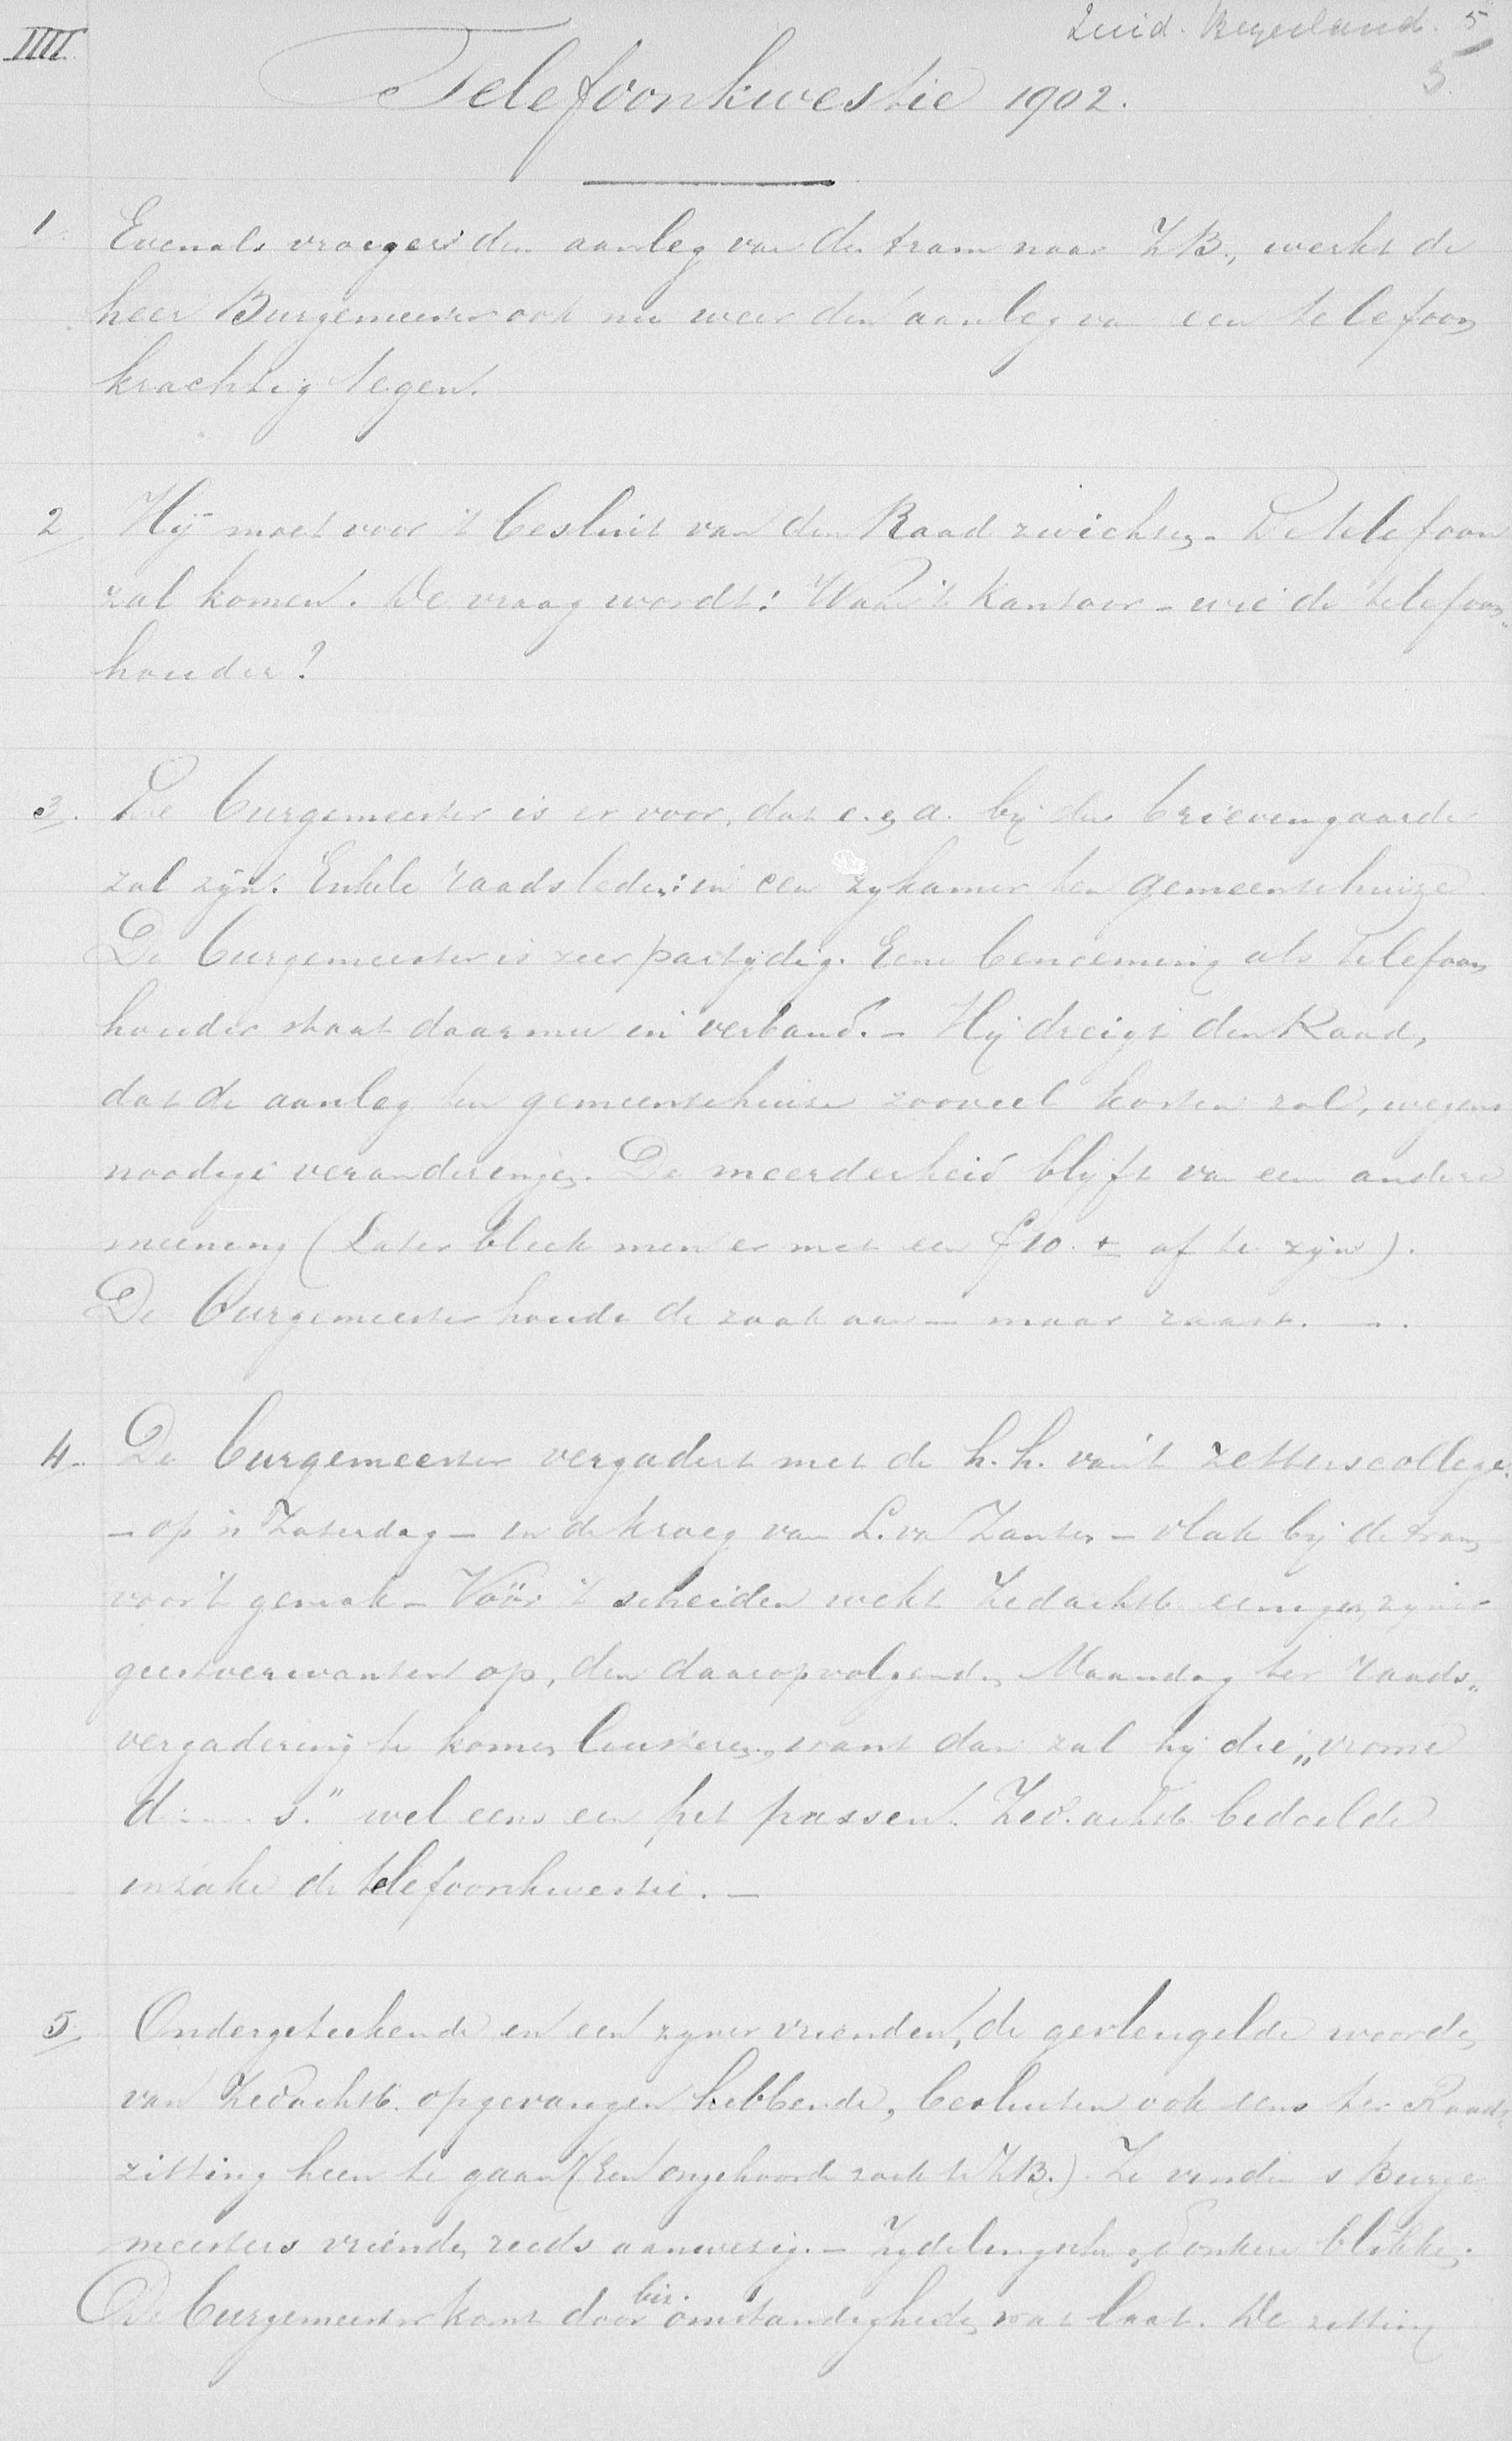 IIII.
Zuid-Beijerland. 5
5.
Telefoonkwestie 1902.
1. Evenals vroeger den aanleg van den tram naar Z.B., werkt de
heer Burgemeester ook nu weer den aanleg van een telefoon
krachtig tegen.
2 Hij moet voor 't besluit van den Raad zwichten. De telefoon
zal komen. De vraag wordt: Waar 't kantoor - wie de telefoon„
houder?
3. De burgemeester is er voor, dat e.e.a. bij den brievengaarder
zal zijn. Enkele raadsleden: in een zijkamer ten gemeentehuize.
De burgemeester is zeer partijdig. Eene benoeming als telefoon
houder staat daarmee in verband. - Hij dreigt den Raad,
dat de aanleg ten gemeentehuize zooveel kosten zal, wegens
noodige veranderingen. De meerderheid blijft van eene andere
meening (Later bleek men er met een f 10. ± af te zijn).
De burgemeester houdt de zaak aan - maar raast. -.
4. De burgemeester vergadert met de h.h. van 't zetterscollege.
- op 'n Zaterdag - in de kroeg van L. van Zanten - vlak bij de tram
voor 't gemak - Vóór 't scheiden wekt Zedachtb. eenigen zijner
geestverwanten op, den daaropvolgenden Maandag ter raads„
vergadering te komen luisteren, want dan zal hij die „vrome
d.....s." wel eens een pet passen. Zed.achtb. bedoelde
inzake de telefoonkwestie. -
5. Ondergeteekende en een zijner vrienden, de gevleugelde woorden
van Zedachtb. opgevangen hebbende, besluiten ook eens ter Raads„
zitting heen te gaan (Een ongehoorde zaak te Z.B.). Ze vinden 's Burge
meesters vrienden reeds aanwezig. - Zijdelingsche, donkere blikken.
De burgemeester komt door biz. omstandigheden wat laat. De zitting